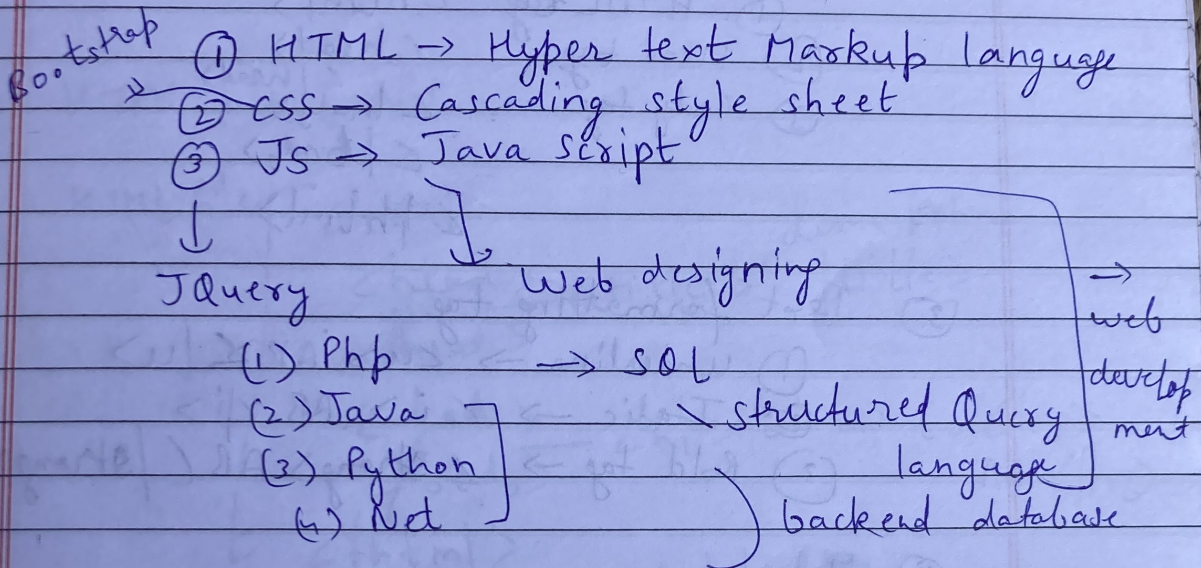 Bootstrap
① HTML → Hyper text Markup language
② CSS → Cascading style sheet
③ JS → Java script
↓
JQuery
Web designing
→ web development
(1) Php → SQL
(2) Java \ structured Query
(3) Python language
(4) Net backend database